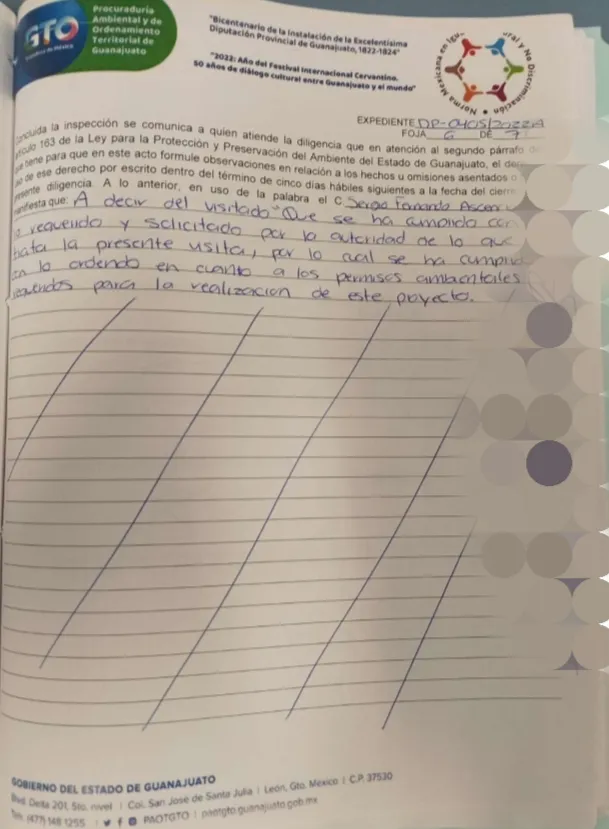 GTO
Procuraduría
Ambiental y de
Ordenamiento
Territorial de
Guanajuato
"Bicentenario de la Instalación de la Excelentísima
Diputación Provincial de Guanajuato, 1822-1824"
"2022: Año del Festival Internacional Cervantino.
50 años de diálogo cultural entre Guanajuato y el mundo"
Norma Mexicana en Igu ral y No Discriminación
EXPEDIENTE DP-0405/2022A
FOJA 6 DE 7
la inspección se comunica a quien atiende la diligencia que en atención al segundo párrafo
163 de la Ley para la Protección y Preservación del Ambiente del Estado de Guanajuato, el
tiene para que en este acto formule observaciones en relación a los hechos u omisiones asentados o
de ese derecho por escrito dentro del término de cinco días hábiles siguientes a la fecha del
diligencia. A lo anterior, en uso de la palabra el C. Sergio Fernando
que: A decir del visitado "Que se ha cumplido con
lo requerido y solicitado por la autoridad de lo que
trata la presente visita, por lo cual se ha
en lo ordendo en cuanto a los permisos ambientales
para la realizacion de este proyecto.
GOBIERNO DEL ESTADO DE GUANAJUATO
Blvd. Delta 201, 5to. nivel | Col. San José de Santa Julia | León, Gto. México | C.P. 37530
(477) 148 1255 | PAOTGTO | paotgto.guanajuato.gob.mx